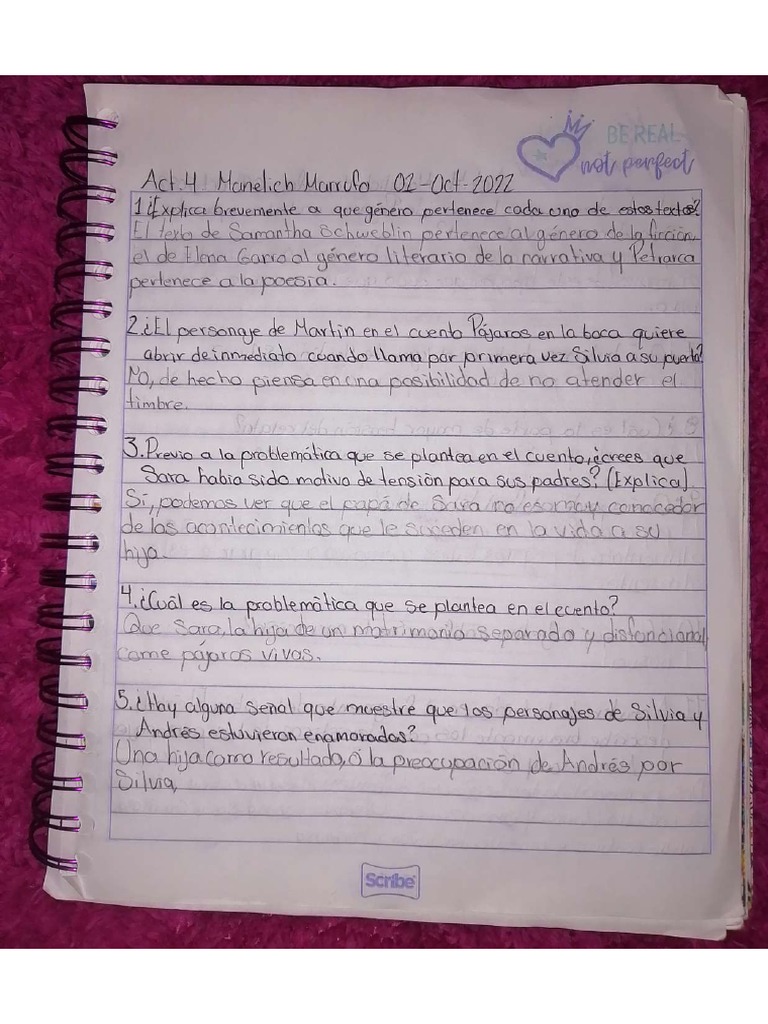 BE REAL
not perfect
Act.4 Manelich Marrufo 02-Oct-2022
1.¿Explica brevemente a que género pertenece cada uno de estos textos?
El texto de Samantha Schweblin pertenece al género de la ficción,
el de Elena Garro al género literario de la narrativa y Petrarca
pertenece a la poesía.
2.¿El personaje de Martin en el cuento Pájaros en la boca quiere
abrir de inmediato cuando llama por primera vez Silvia a su puerta?
No, de hecho piensa en una posibilidad de no atender el
timbre.
3.Previo a la problemática que se plantea en el cuento,¿crees que
Sara habia sido motivo de tensión para sus padres? (Explica)
Sí, podemos ver que el papá de Sara no es muy conocedor
de los acontecimientos que le suceden en la vida a su
hija.
4.¿Cuál es la problemática que se plantea en el cuento?
Que Sara, la hija de un matrimonio separado y distanciano,
come pájaros vivos.
5.¿Hay alguna señal que muestre que los personajes de Silvia y
Andrés estuvieron enamorados?
Una hija como resultado, o la preocupación de Andrés por
Silvia,
Scribe